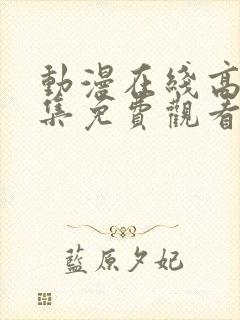 動漫在綫高
集免費觀看
藍原夕妃